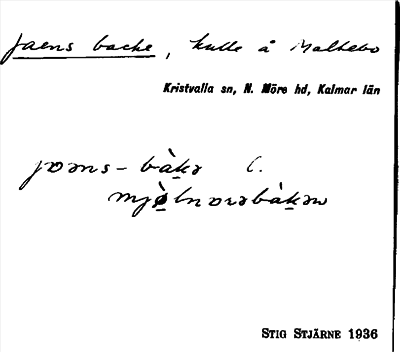 Jaens backe, kulle å Malhebo
Kristvalla sn, N. Möre hd, Kalmar län
jɒəns-bàkə l.
mjø̀lnɒrəbàkən
STIG STJÄRNE 1936